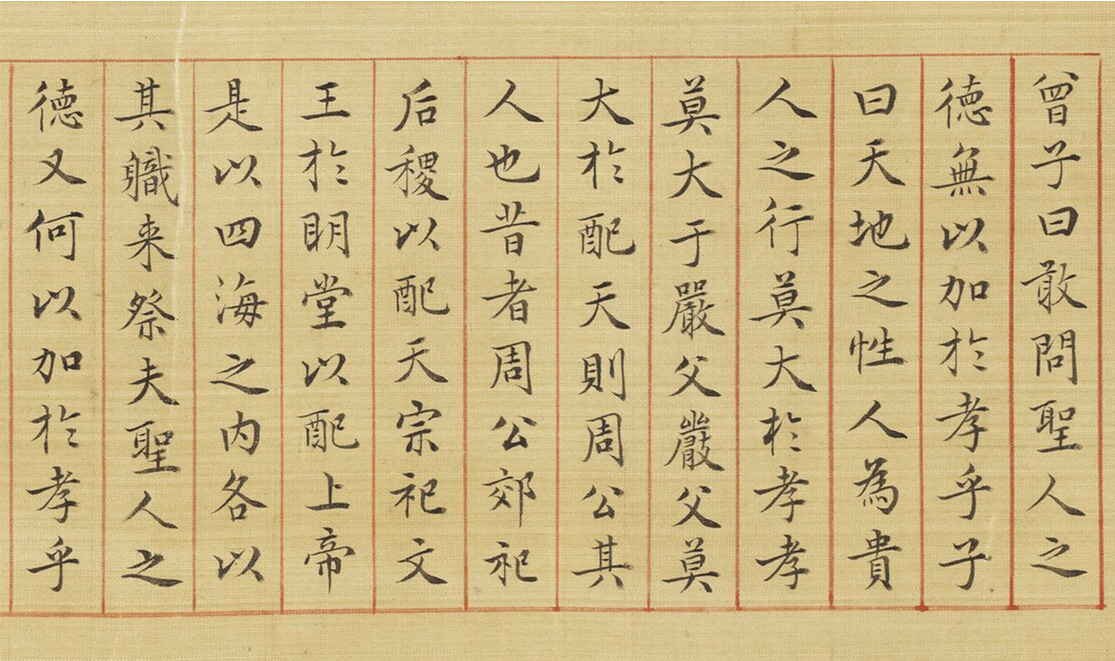 曾子曰敢問聖人之
徳無以加於孝乎子
曰天地之性人為貴
人之行莫大於孝孝
莫大于嚴父嚴父莫
大於配天則周公其
人也昔者周公郊祀
后稷以配天宗祀文
王於明堂以配上帝
是以四海之内各以
其職来祭夫聖人之
徳又何以加於孝乎